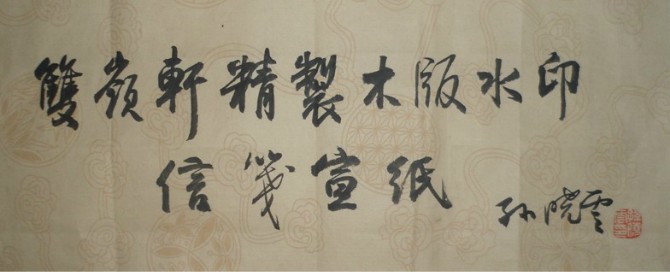 雙嶺軒精製木版水印
信箋宣紙
孙晓雲